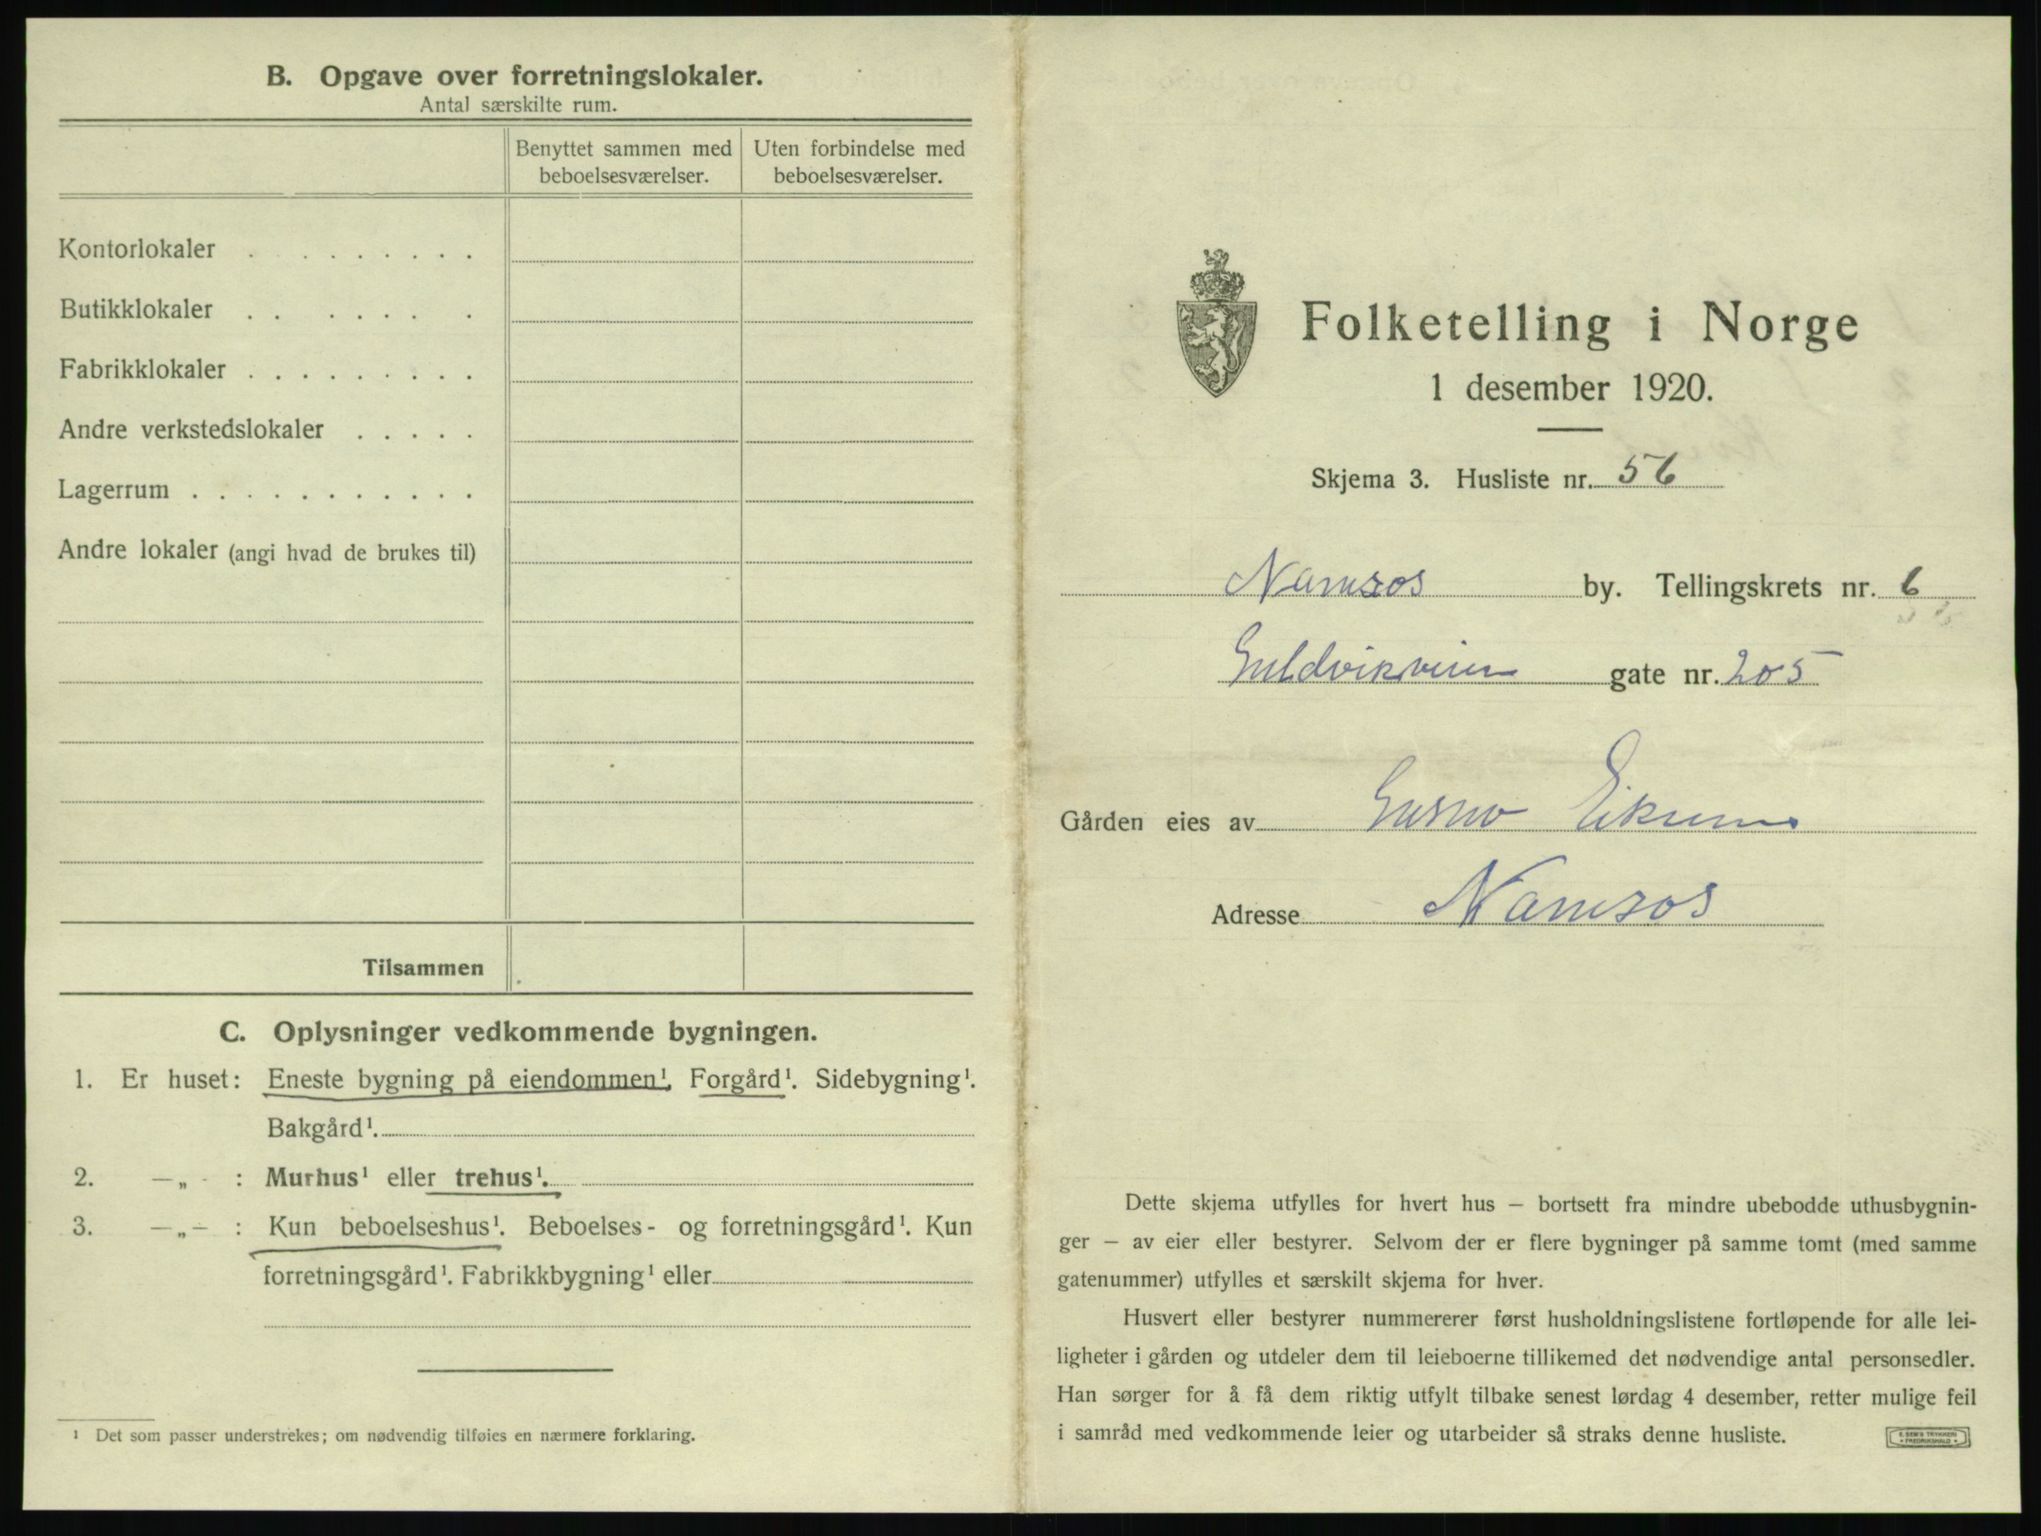 B. Opgave over forretningslokaler.
Antal særskilte rum.
Benyttet sammen med beboelsesværelser.
Uten forbindelse med beboelsesværelser.
Kontorlokaler . . . . . . . . .
Butikklokaler . . . . . . .
Fabrikklokaler . . . . . . . . .
Andre verkstedslokaler . . . . .
Lagerrum . . . . . . . . . . .
Andre lokaler (angi hvad de brukes til)
Tilsammen
C. Oplysninger vedkommende bygningen.
1. Er huset: Eneste bygning på eiendommen¹. Forgård¹. Sidebygning¹.
Bakgård¹.
2. —„— : Murhus¹ eller trehus¹.
3. —„— : Kun beboelseshus¹. Beboelses- og forretningsgård¹. Kun
forretningsgård¹. Fabrikkbygning¹ eller
¹ Det som passer understrekes; om nødvendig tilføies en nærmere forklaring.
Folketelling i Norge
1 desember 1920.
Skjema 3. Husliste nr. 56
Namsos by. Tellingskrets nr. 6
Guldvikveien gate nr. 205
Gården eies av Eikrem
Adresse Namsos
Dette skjema utfylles for hvert hus — bortsett fra mindre ubebodde uthusbygnin-
ger — av eier eller bestyrer. Selvom der er flere bygninger på samme tomt (med samme
gatenummer) utfylles et særskilt skjema for hver.
Husvert eller bestyrer nummererer først husholdningslistene fortløpende for alle lei-
ligheter i gården og utdeler dem til leieboerne tillikemed det nødvendige antal personsedler.
Han sørger for å få dem riktig utfylt tilbake senest lørdag 4 desember, retter mulige feil
i samråd med vedkommende leier og utarbeider så straks denne husliste.
E. SEM'S TRYKKERI
FREDRIKSHALD